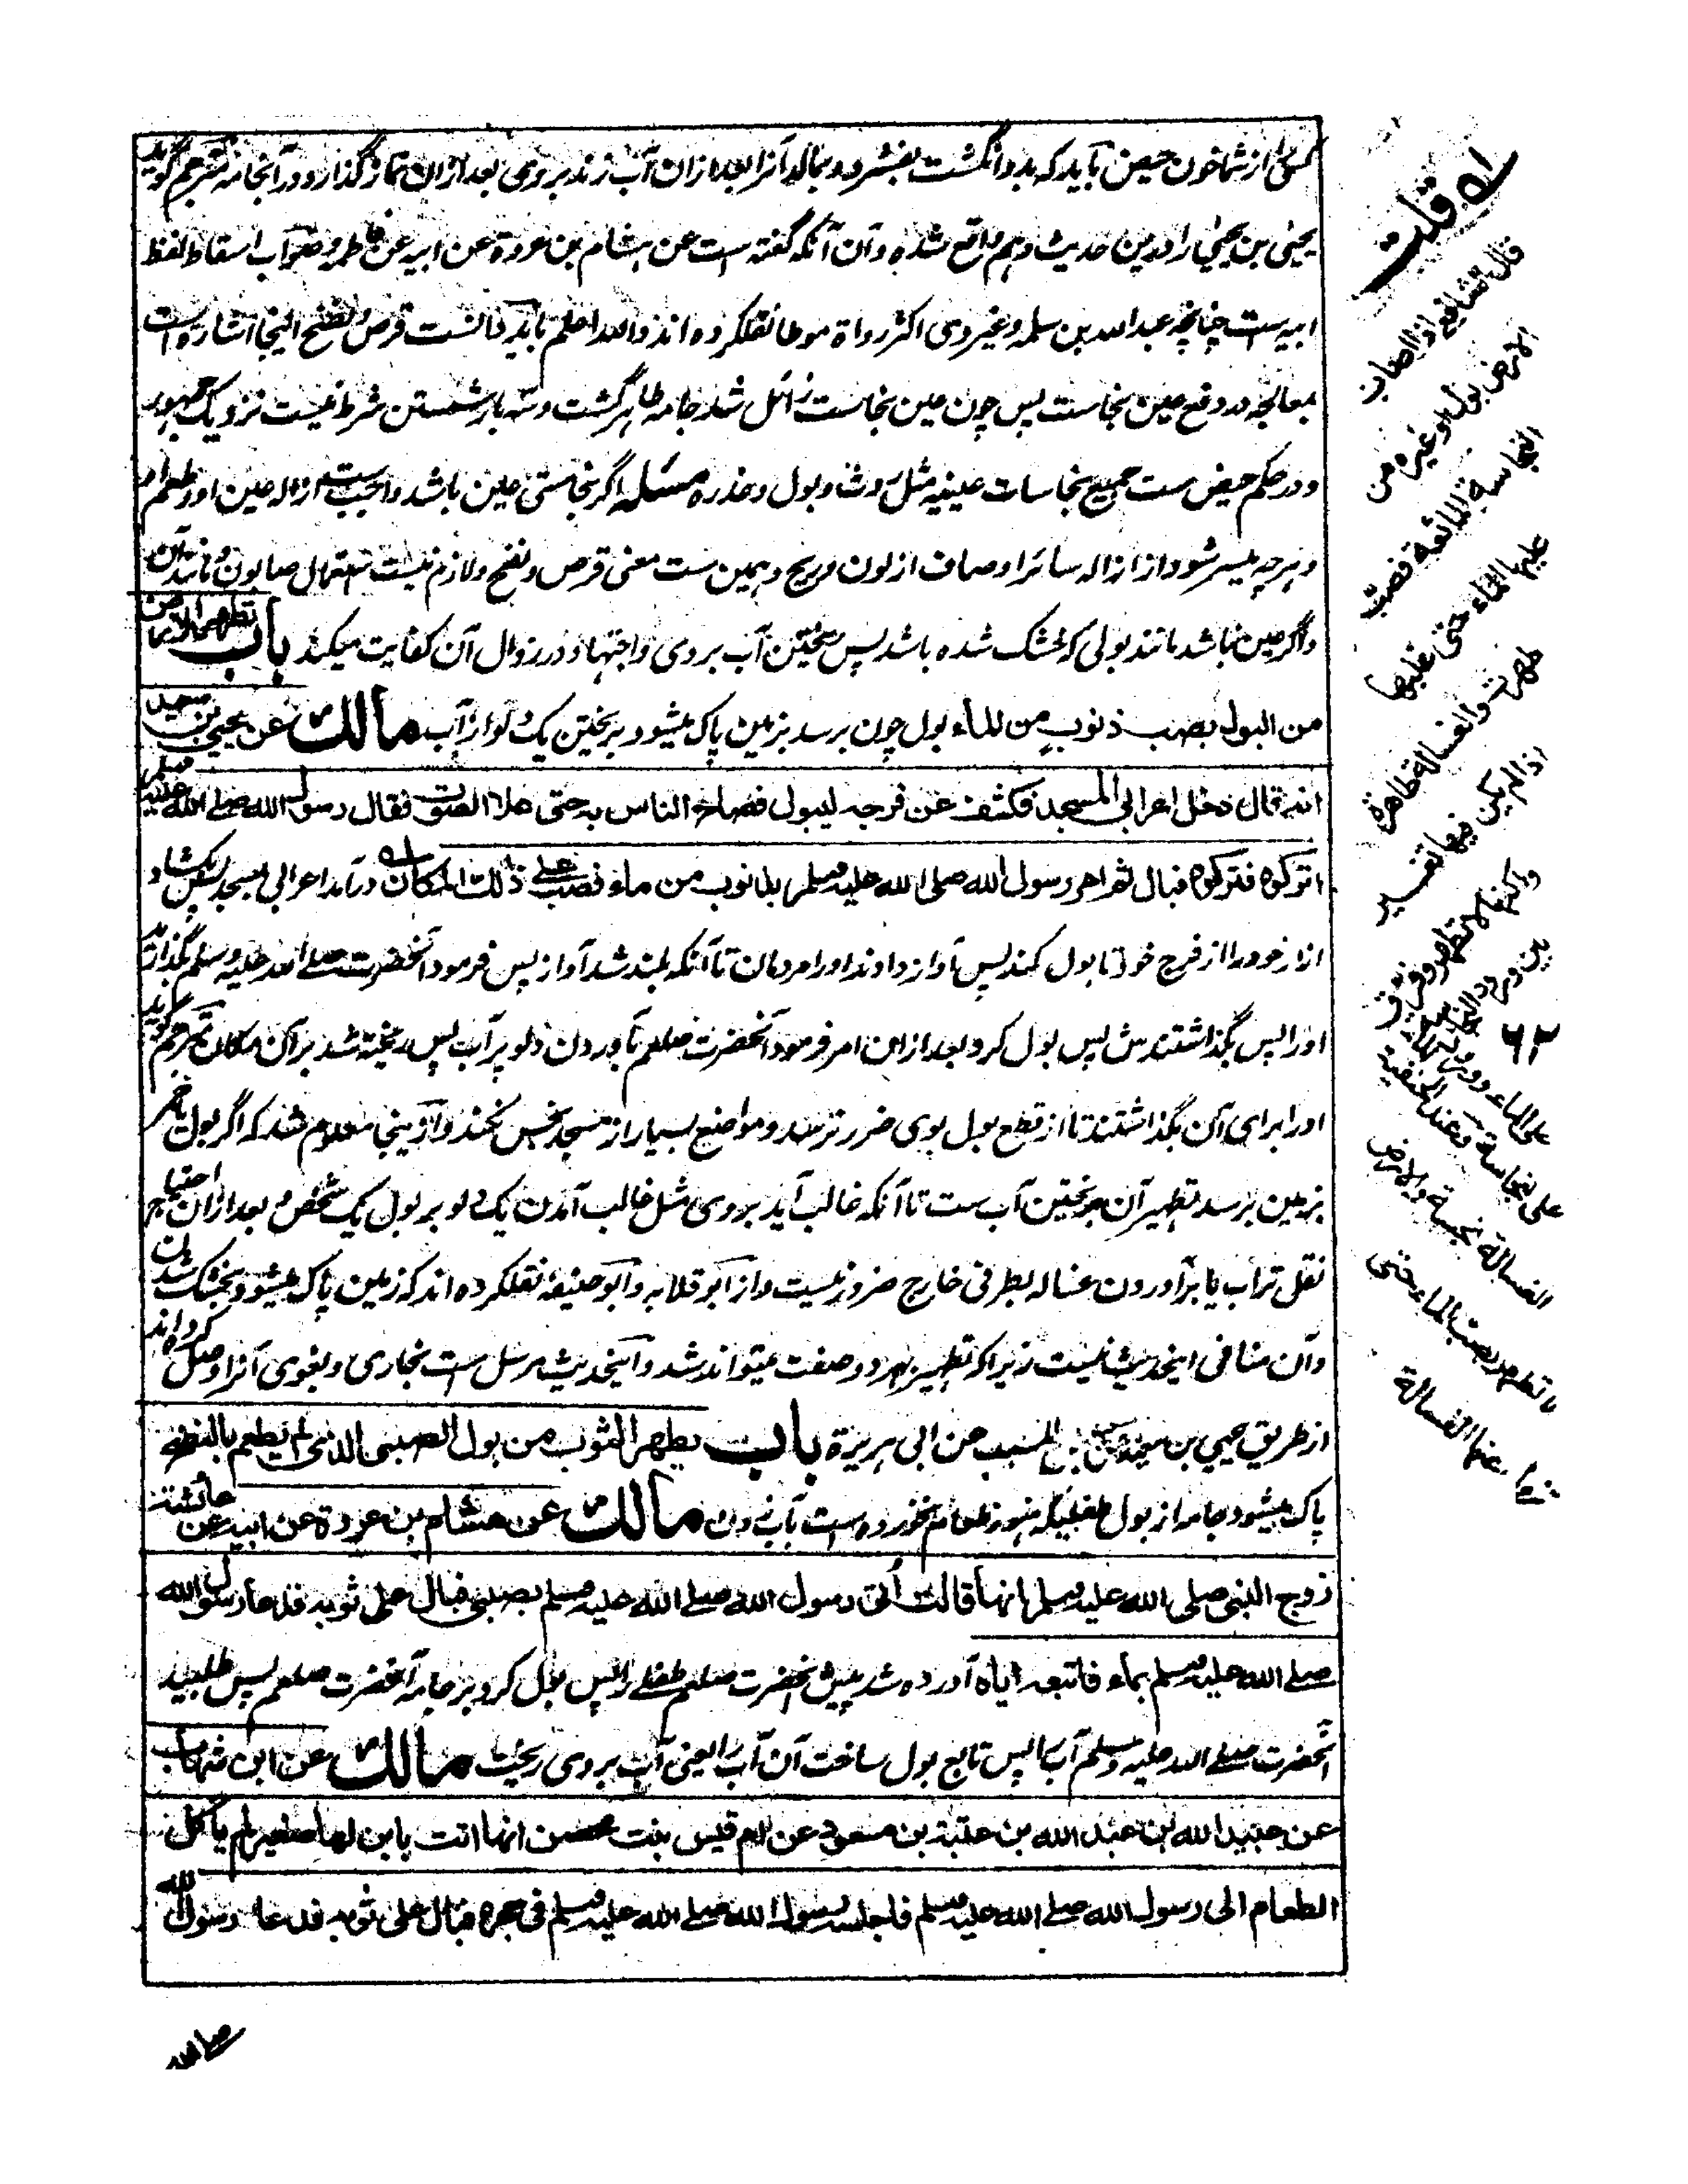 کسی از شما خون حیض باید که بدو انگشت بفشرد و بمالد آنرا بعد ازان آب زند بروی بعد ازان نماز گذارد در آنجامه مترجم گوید
یحیی بن یحیی را درین حدیث وهم واقع شده و آن آنکه گفته است عن هشام بن عروة عن ابیه عن فاطمه و صواب اسقاط لفظ
ابیه ست چنانچه عبد الله بن سلمه و غیر وی اکثر رواة موطا نقلکرده اند والله اعلم باید دانست قرص و نضح اینجا اشارة است
بمعالجه در دفع عین نجاست پس چون عین نجاست زائل شد جامه طاهر گشت و سه بار شستن شرط نیست نزدیک جمهور
و در حکم حیض ست جمیع نجاسات عینیه مثل روث و بول و عذره مسئله اگر نجاستی عین باشد واجب ست ازاله عین او و طعم او
و هر چه میسر شود از ازاله سائر اوصاف از لون و ریح و همین ست معنی قرص و نضح و لازم نیست استعمال صابون و مانند آن
و اگر عین نباشد مانند بولی که خشک شده باشد پس ریختن آب بروی و اجتهاد در زوال آن کفایت میکند باب تطهیر الارض
من البول بصب ذنوب من الماء بول چون برسد بزمین پاک میشود بریختن یک دلو از آب مالک عن یحیی بن سعید
انه قال دخل اعرابی المسجد فکشف عن فرجه لیبول فصاح الناس به حتی علا الصوت فقال رسول الله صلی الله علیه وسلم
اترکوه فترکوه فبال ثم امر رسول الله صلی الله علیه وسلم بذنوب من ماء فصب علی ذلک المکان در آمد اعرابی بمسجد پس بکشاد
ازار خود را از فرج خود تا بول کند پس آواز دادند او را مردمان تا آنکه بلند شد آواز پس فرمود آنحضرت صلی الله علیه وسلم بگذارید
او را پس بگذاشتندش پس بول کرد بعد ازان امر فرمود آنحضرت صلعم بآوردن دلو پر آب پس ریخته شد بر آن مکان مترجم گوید
او را برای آن بگذاشتند تا از قطع بول بوی ضرر نرسد و مواضع بسیار از مسجد نجس نکند و ازینجا معلوم شد که اگر بول یا خمر
بزمین برسد تطهیر آن بریختن آب ست تا آنکه غالب آید بروی مثل غالب آمدن یک دلو بر بول یک شخص و بعد ازان احتیاج
نقل تراب یا بر آوردن غساله بطرفی خارج ضرور نیست و از ابو قلابه و ابو حنیفه نقلکرده اند که زمین پاک میشود بخشک شدن
و آن منافی اینحدیث نیست زیرا که تطهیر بهر دو صفت میتواند شد و اینحدیث مرسل است بخاری و بغوی آنرا وصل کرده اند
از طریق یحیی بن سعید عن المسیب عن ابی هریرة باب یطهر الثوب من بول الصبی الذی لم یطعم بالنضح
پاک میشود جامه از بول طفلیکه هنوز طعام نخورده است بآب زدن مالک عن هشام بن عروة عن ابیه عن عائشة
زوج النبی صلی الله علیه وسلم انها قالت أتی رسول الله صلی الله علیه وسلم بصبی فبال علی ثوبه فدعا رسول الله
صلی الله علیه وسلم بماء فاتبعه ایاه آورده شد پیش آنحضرت صلعم طفلی را پس بول کرد بر جامه آنحضرت صلعم پس طلبید
آنحضرت صلی الله علیه وسلم آب را پس تابع بول ساخت آن آب را یعنی آب بروی ریخت مالک عن ابن شهاب
عن عبید الله بن عبد الله بن عتبة بن مسعود عن ام قیس بنت محصن انها اتت بابن لها صغیر لم یاکل
الطعام الی رسول الله صلی الله علیه وسلم فاجلسه رسول الله صلی الله علیه وسلم فی حجره فبال علی ثوبه فدعا رسول الله
قلت
قال الشافعی اذا اصاب
الارض بول او غیره من
النجاسة المائعة فصب
علیها الماء حتی غلبها
طهرت والغسالة طاهرة
اذا لم یکن فیها تغییر
ولکنها لا تطهر وفرق
بین ورود النجاسة
علی الماء وورود الماء
علی نجاسة وعند الحنفیة
الغسالة نجسة والارض
لا تطهر بصب الماء حتی
عنها الغسالة
۶۲